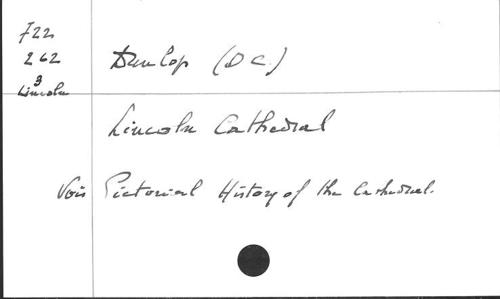 722
262 Dunlop (D C.)
3
Lincoln
Lincoln Cathedral
Voir Pictorial History of the Cathedral.